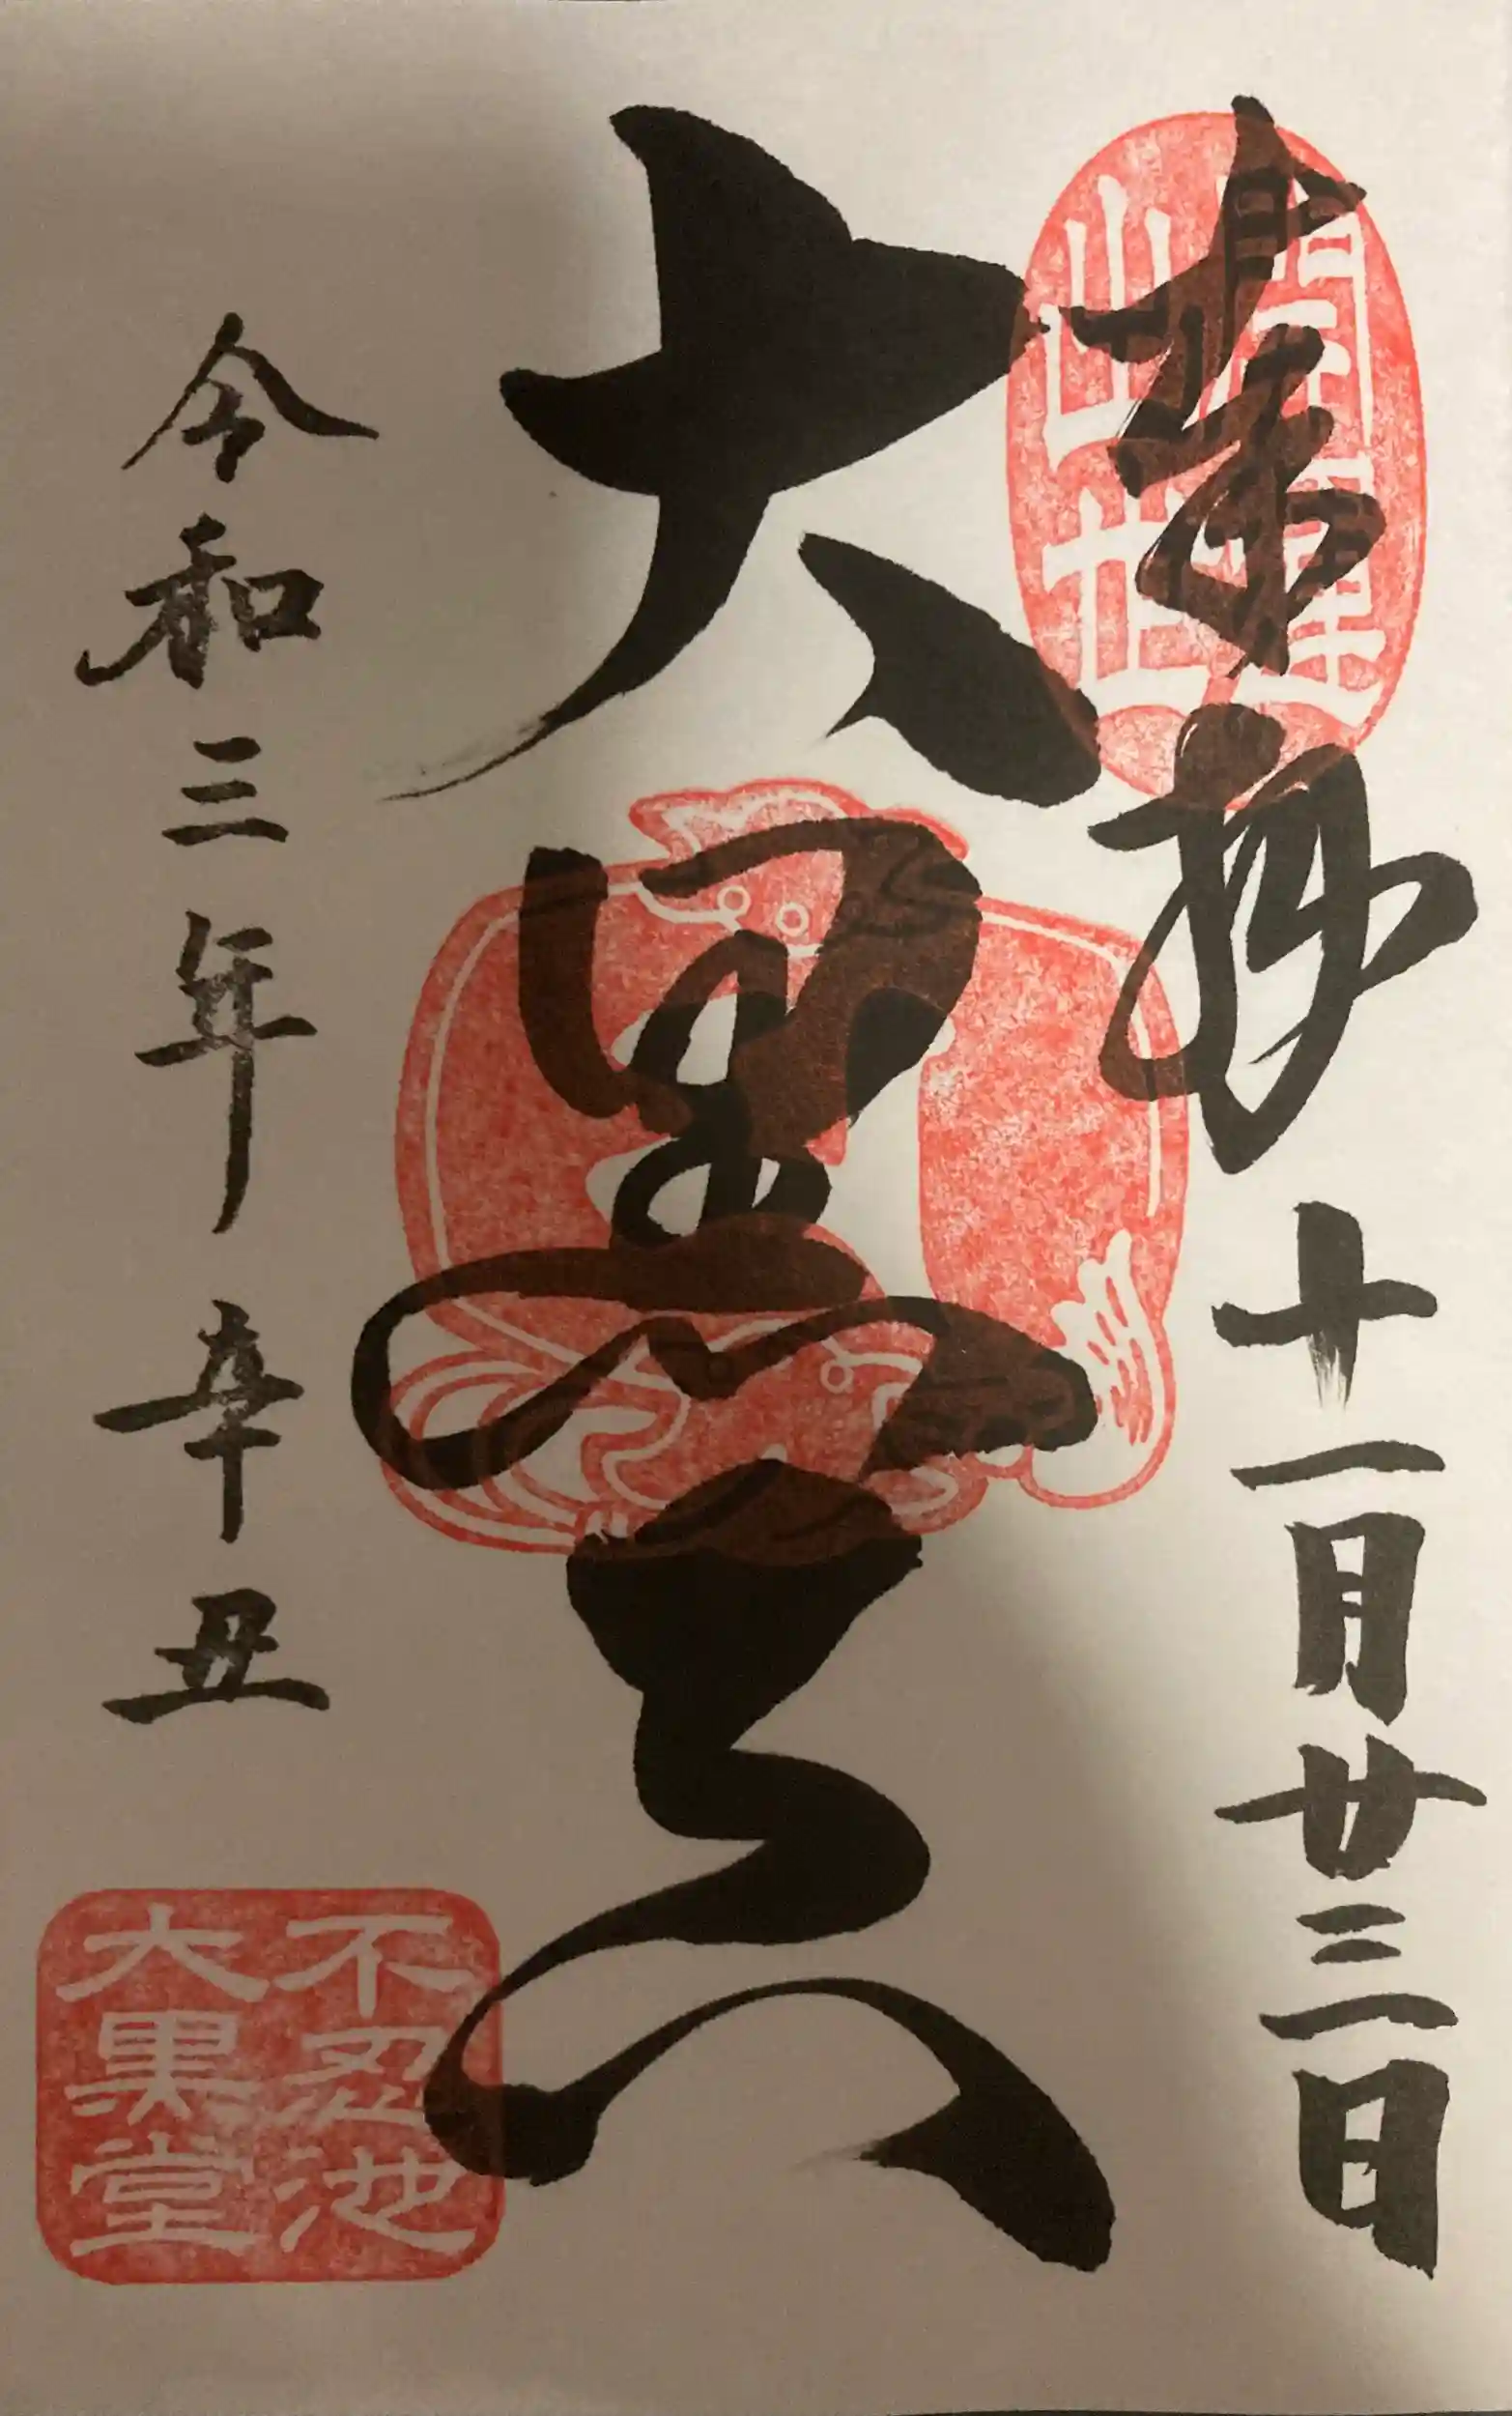 奉拝 十一月廿三日
大黒天
令和三年 辛丑
出世
不忍池
大黒堂